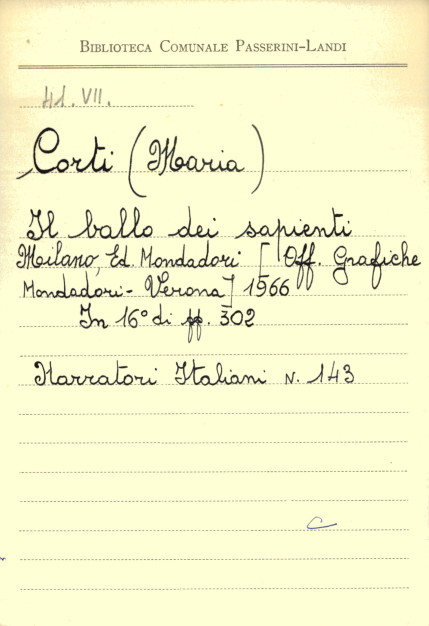 BIBLIOTECA COMUNALE PASSERINI-LANDI
41. VII.
Corti (Maria)
Il ballo dei sapienti
Milano, Ed. Mondadori [Off. Grafiche
Mondadori - Verona] 1966
In 16° di pp. 302
Narratori Italiani N. 143
C